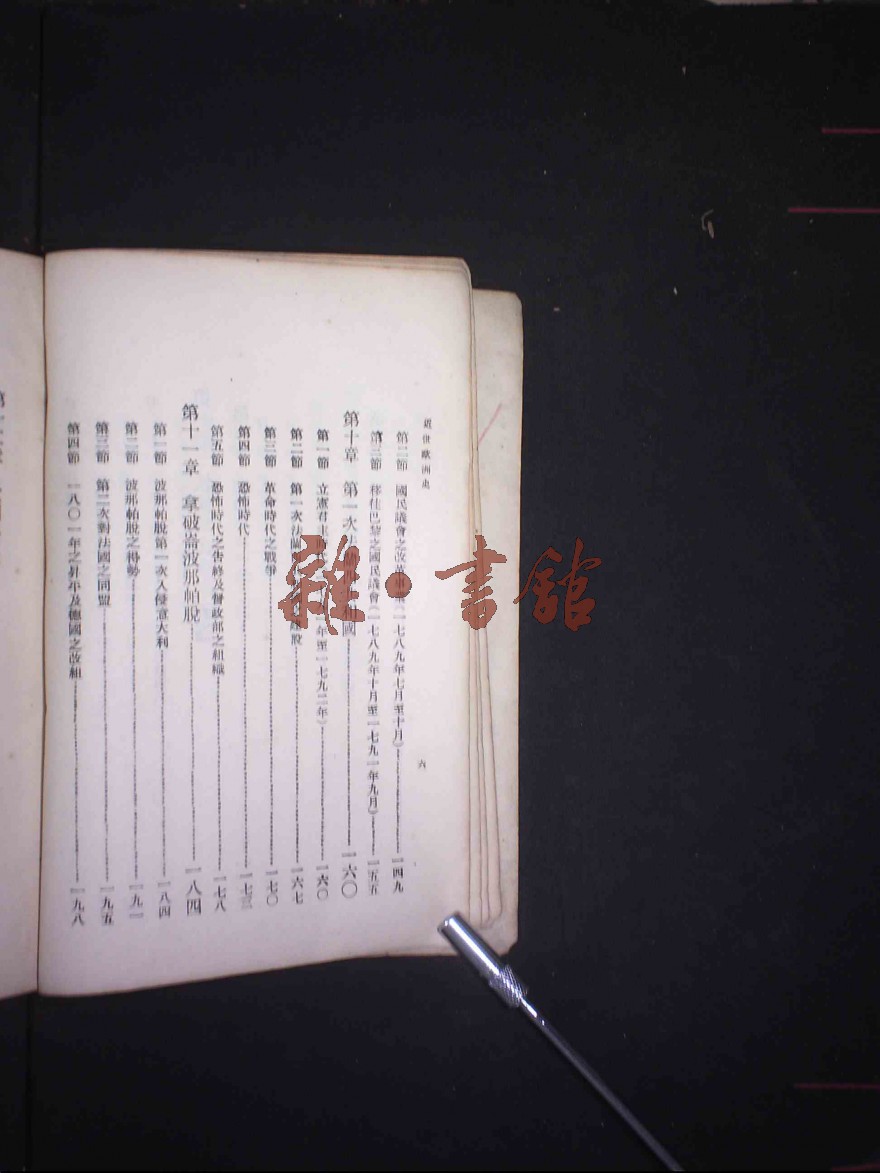 近世歐洲史
六
第二節 國民議會之改革事業(一七八九年七月至十月)一四九
第三節 移往巴黎之國民議會(一七八九年十月至一七九一年九月)一五五
第十章 第一次法 國一六〇
第一節 立憲君主時代 年至一七九二年)一六〇
第二節 第一次法蘭 一六七
第三節 革命時代之戰爭一七〇
第四節 恐怖時代一七三
第五節 恐怖時代之告終及督政部之組織一七八
第十一章 拿破崙波那帕脫一八四
第一節 波那帕脫第一次入侵意大利一八四
第二節 波那帕脫之得勢一九一
第三節 第二次對法國之同盟一九五
第四節 一八〇一年之和平及德國之改組一九八
雜·書館